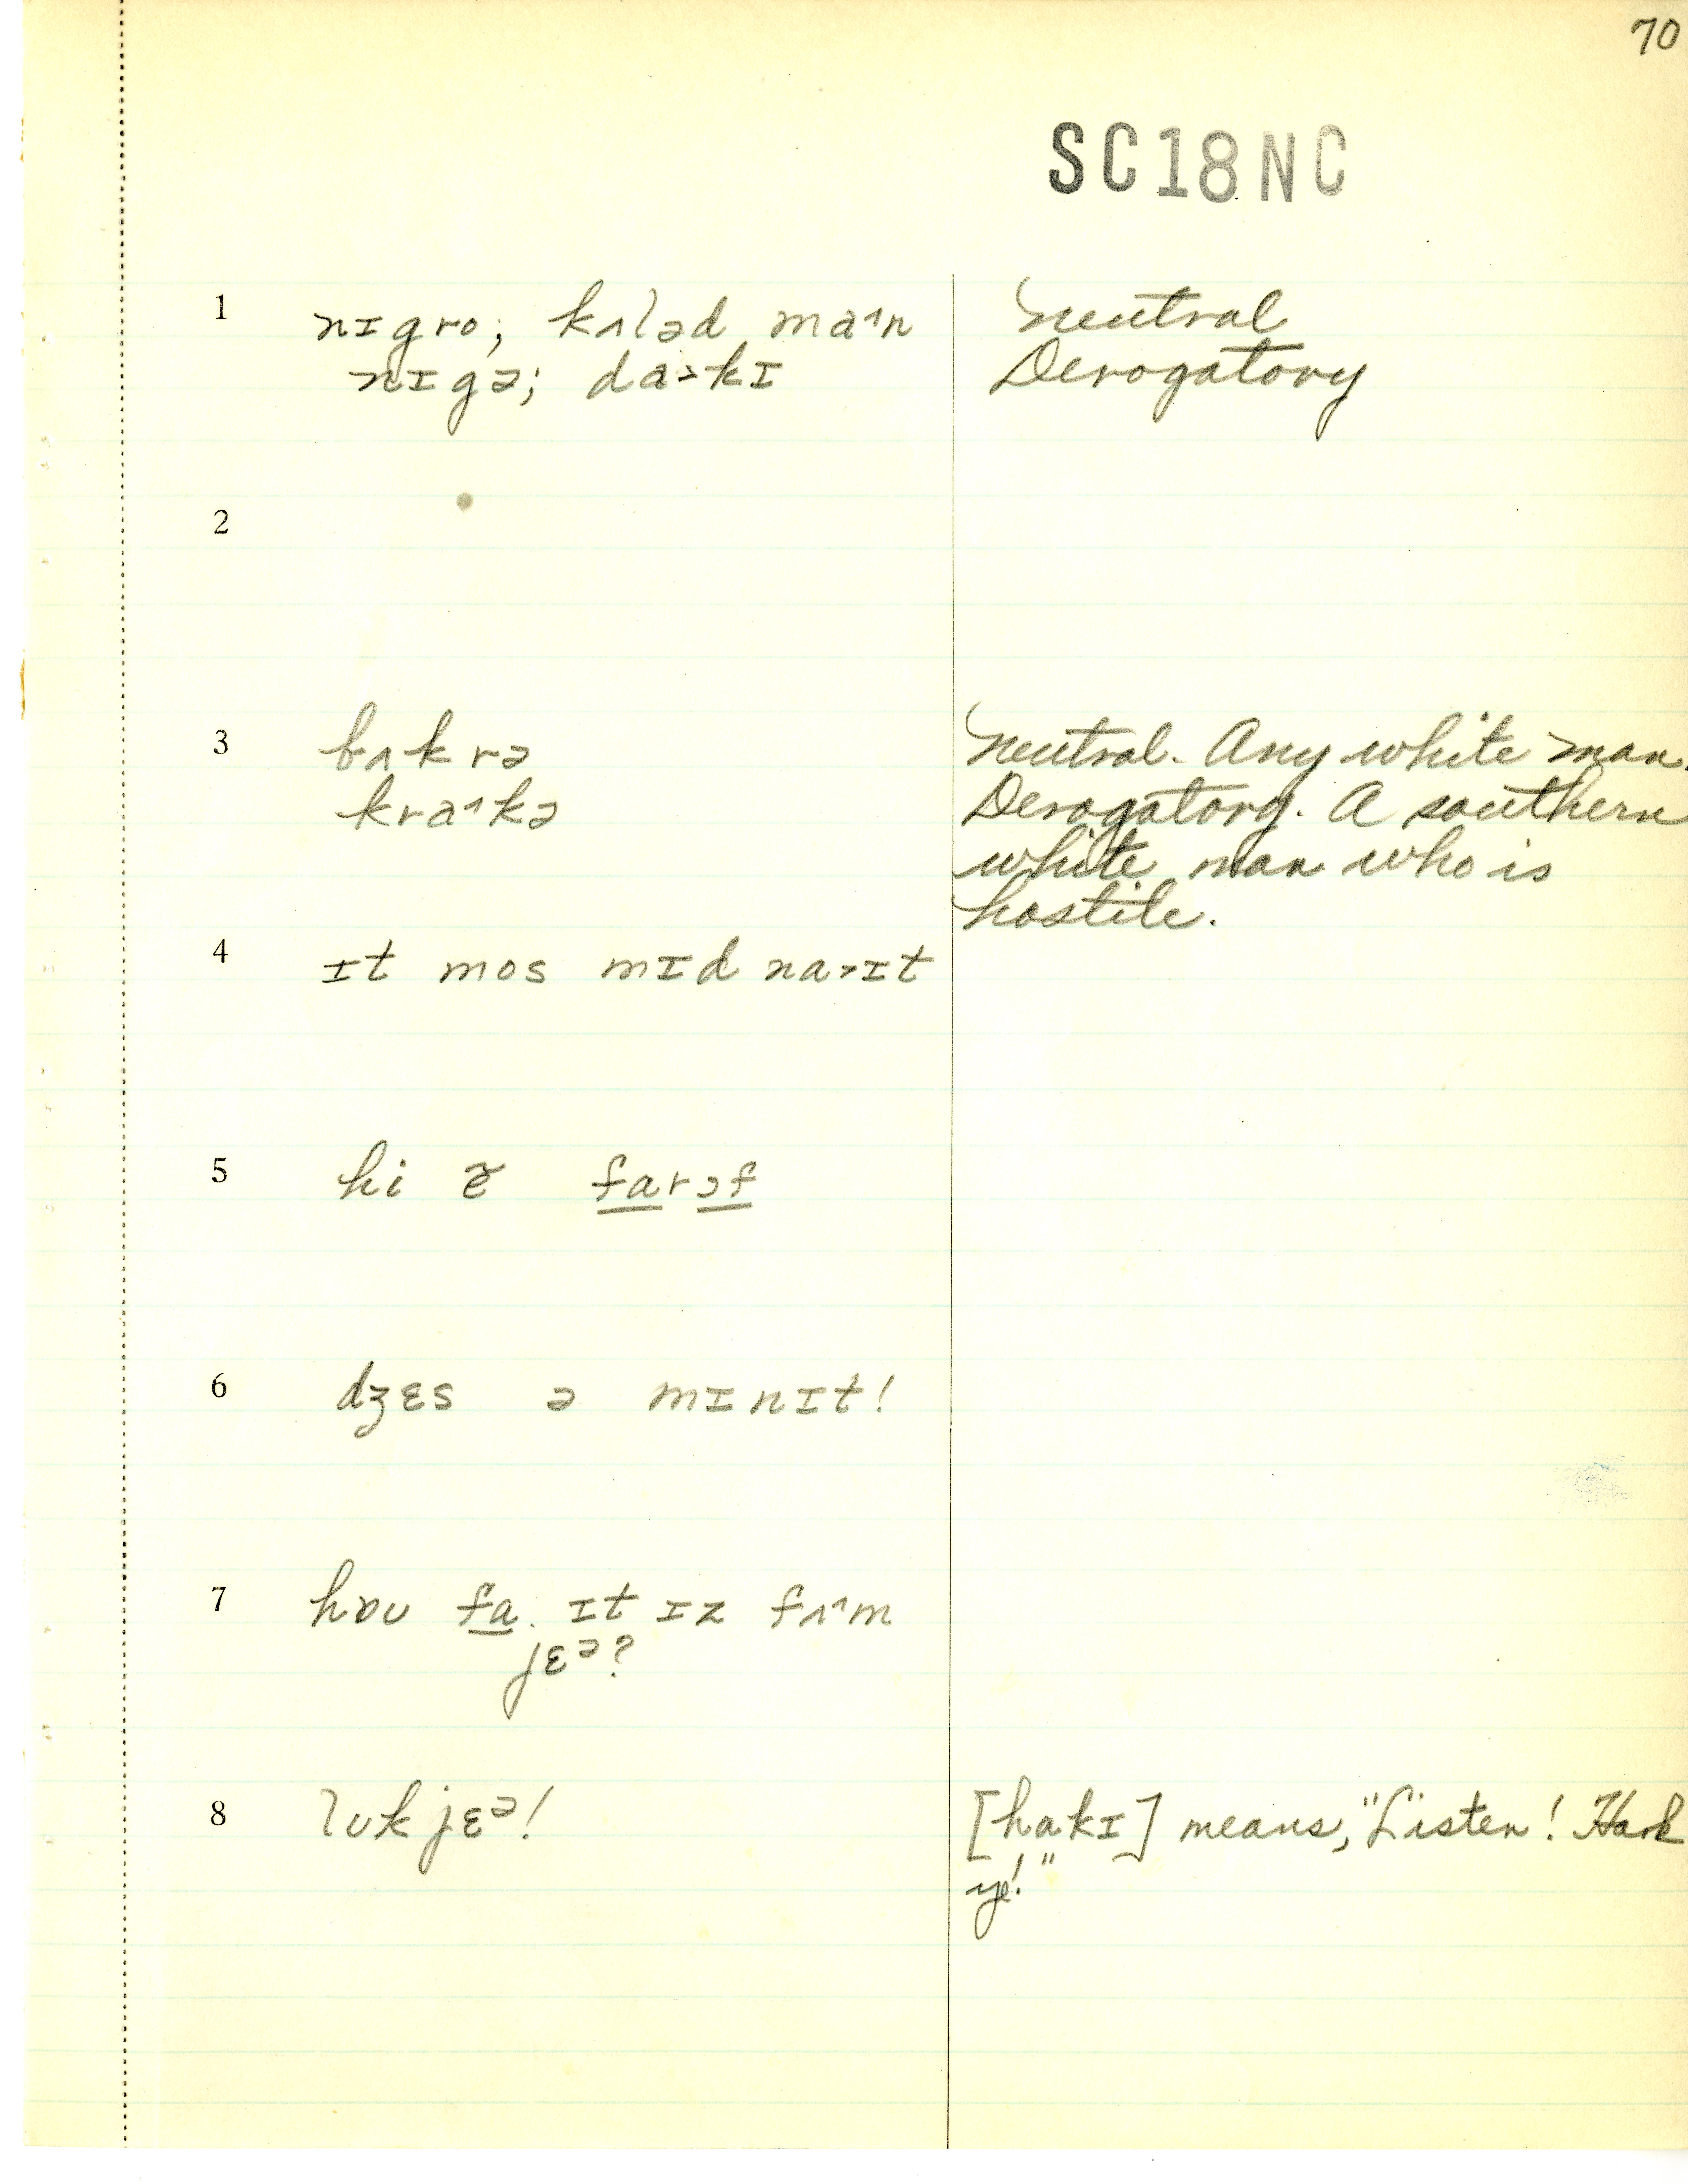 70
SC18NC
1 nɪgro; kʌləd ma˄n Neutral
nɪgə; da˃kɪ Derogatory
2
3 bʌkrə Neutral. Any white man.
kra˄kə Derogatory. A southern
white man who is
hostile.
4 ɪt mos mɪd na˃ɪt
5 hi ə̃ farəf
6 dʒɛs ə mɪnɪt!
7 hɒʊ fa ɪt ɪz frʌ˄m
jɛᵊ?
8 lʊk jɛᵊ! [hakɪ] means, "Listen! Hark
ye!"